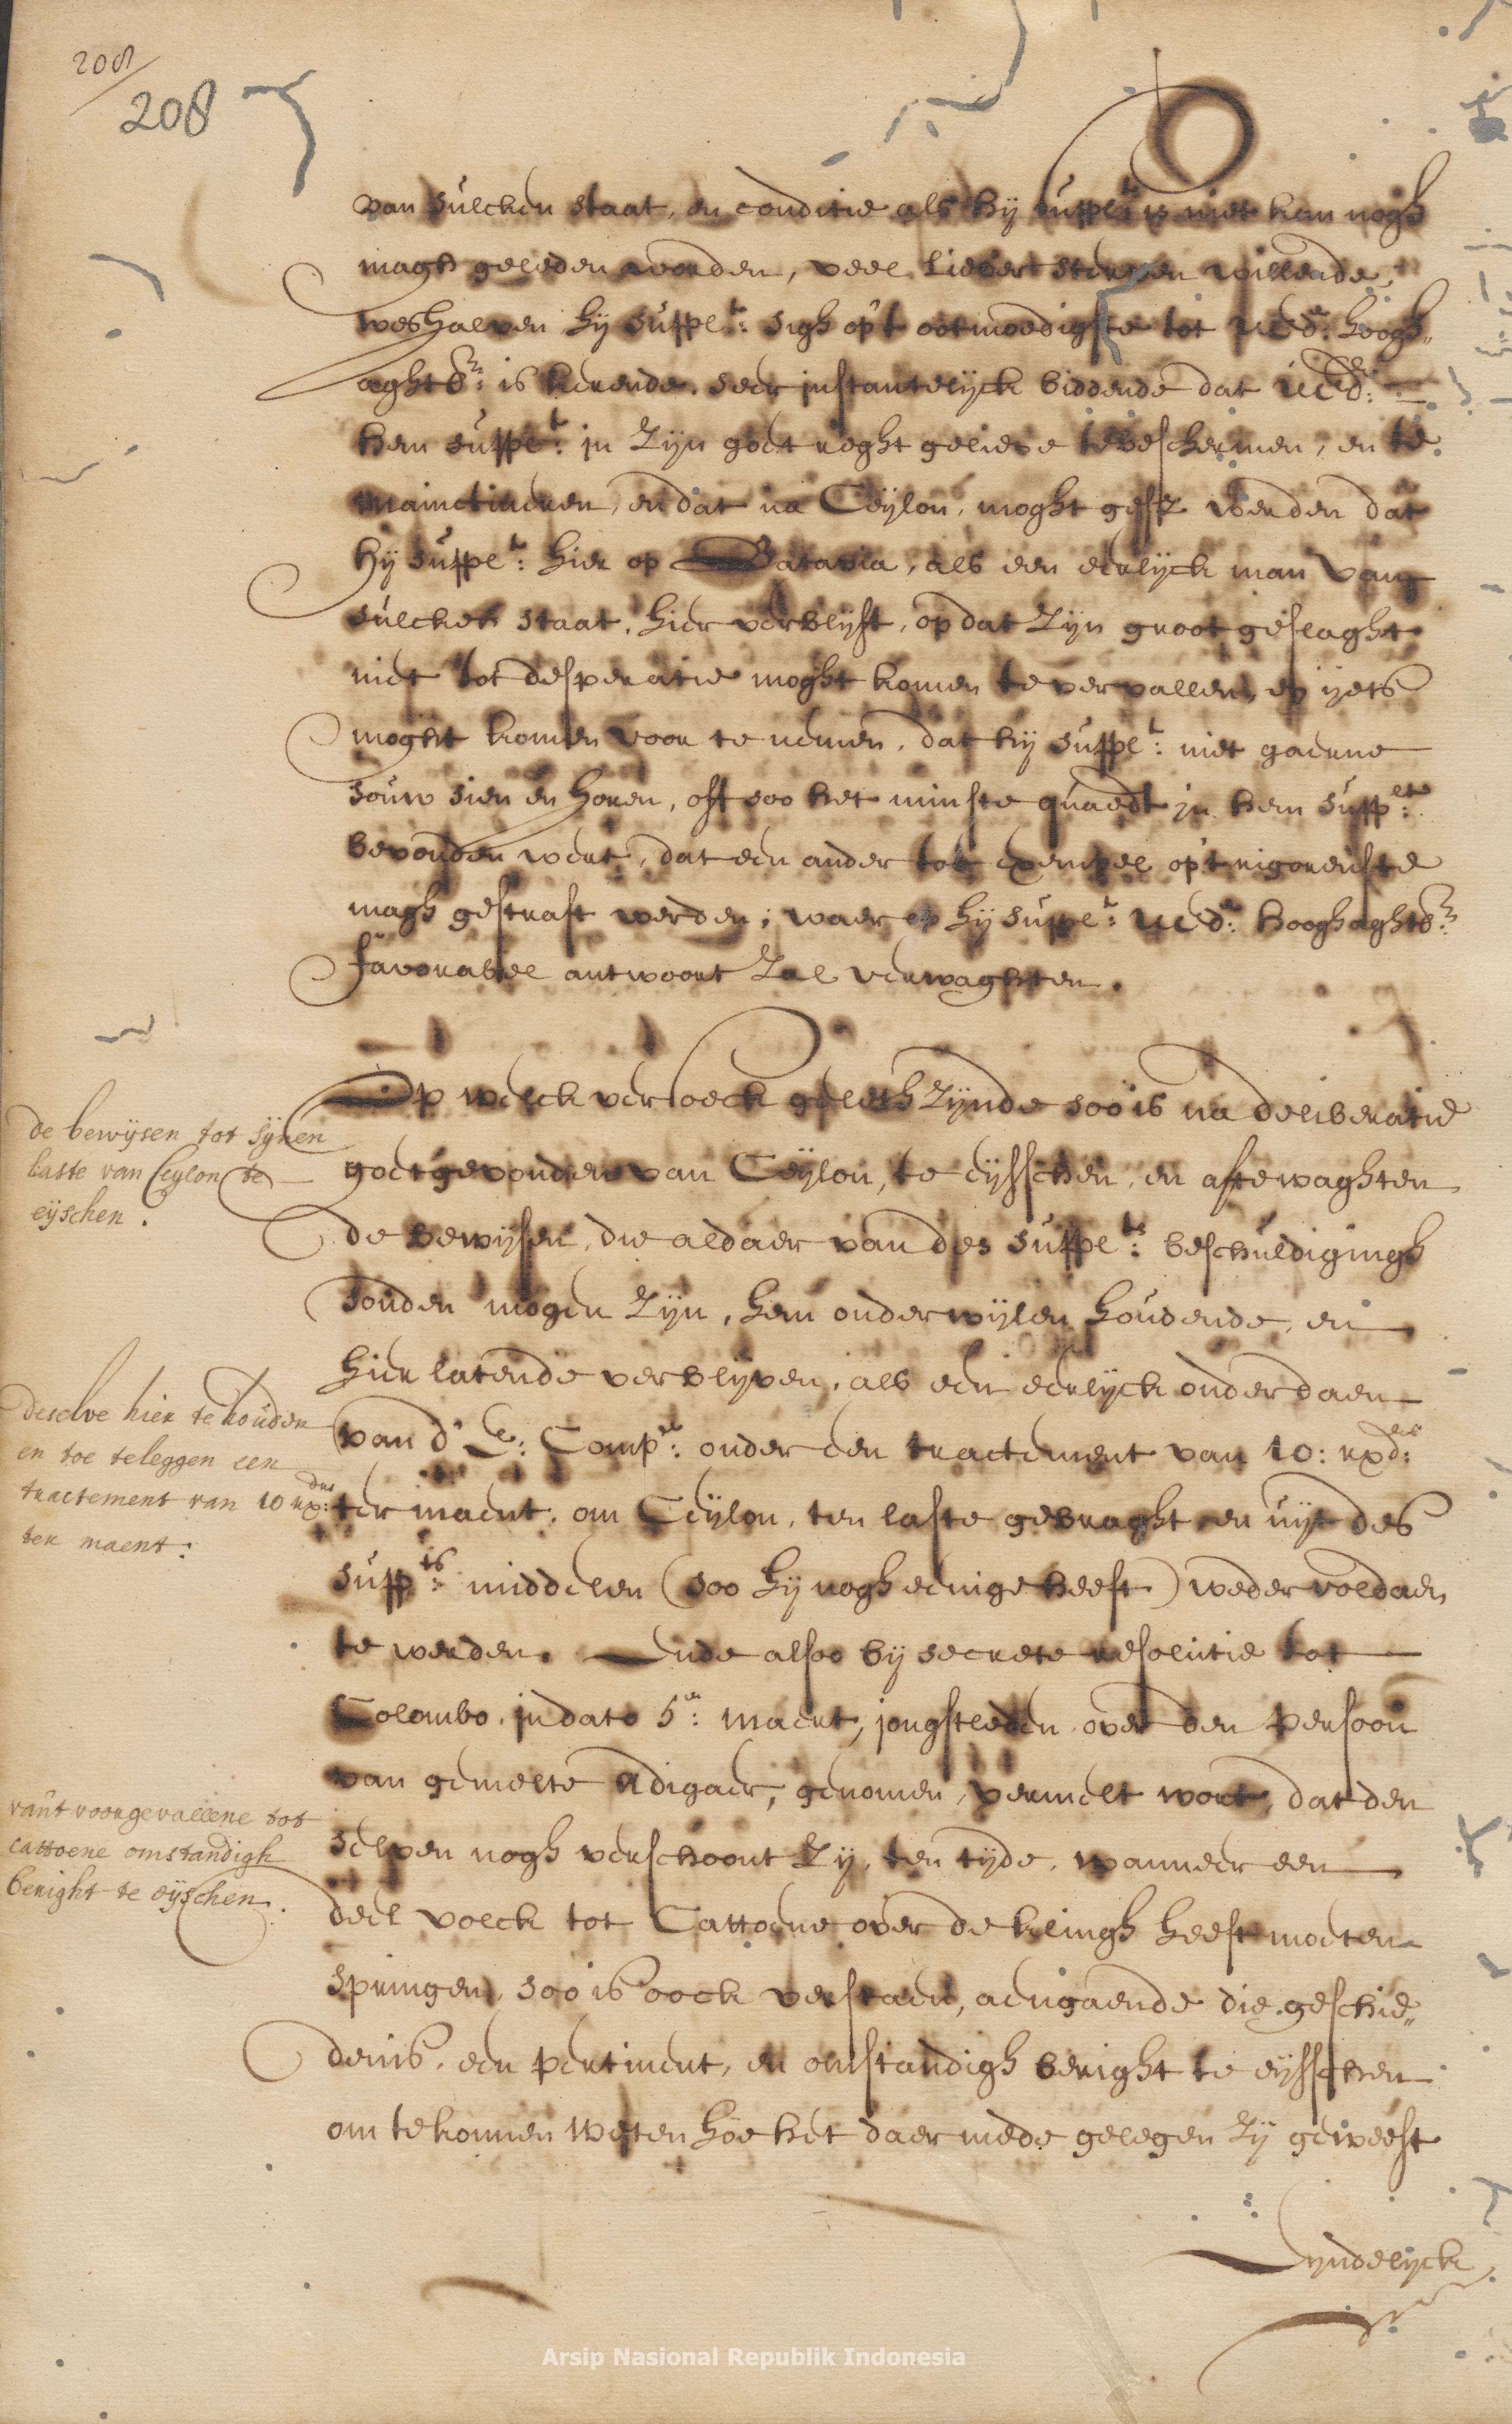 208
208
van sulcken staat, en conditie als hij supplt: is niet kan nogh
magh geleden worden, veel liever sterven willende
weshalven hij supplt: sigh op't ootmoedighste tot UEd: hoogh„
aghtbr: is kerende, seer instantelijck biddende dat UEd:
hem supplt: in zijn goet reght gelieve te beschermen, en te
mainctineren, en dat na Ceijlon, moght geschr werden dat
hij supplt: hier op Batavia, als een eerlijck man van
sulcken staat, hier verblijft, op dat zijn groot geslaght
niet tot desperatie moght komen te vervallen, en ijets
moght komen voor te nemen, dat hij supplt: niet gaerne
souw sien en horen, oft soo het minste quaedt in hem supplte:
bevonden wert, dat een ander tot exempel op't rigoreuste
magh gestraft werden; waer op hij supplt: UEd: hooghaghtbr:
favorabel antwoort zal verwaghten.
Op welck versoeck geleth zijnde soo is na deliberatie
goetgevonden van Ceijlon, te eijsschen, en aftewaghten
de bewijsen, die aldaer van des supplts: beschuldigingh
souden mogen zijn, hem onderwijlen houdende, en
hier latende verblijven, als een eerlijck onderdaen
van d' E: Compe: onder een tractement van 10: rxds:
ter maent, om Ceijlon, ten laste gebraght en uijt des
suppts: middelen (soo hij nogh eenige heeft) weder voldaen
te werden. Ende alsoo bij secrete resolutie tot
Colombo, in dato 5en: maert, jongstleden, over den persoon
van gemelte Adigaer, genomen, vermelt wort, dat den
selven nogh verschoont zij, ten tijde, wanneer een
deel volck tot Cattoene over de klingh heeft moeten
springen, soo is oock verstaen, aengaende die geschie„
denis, een pertinent, en omstandigh beright te eijsschen
om te konnen weten hoe het daer mede gelegen zij geweest
Eijndelijck
de bewijsen tot sijnen
laste van Ceylon te
eijschen.
deselve hier te houden
en toe te leggen een
tractement van 10 rxds:
ter maent:
van't voorgevallene tot
cattoene omstandigh
beright te eijschen.
Arsip Nasional Republik Indonesia